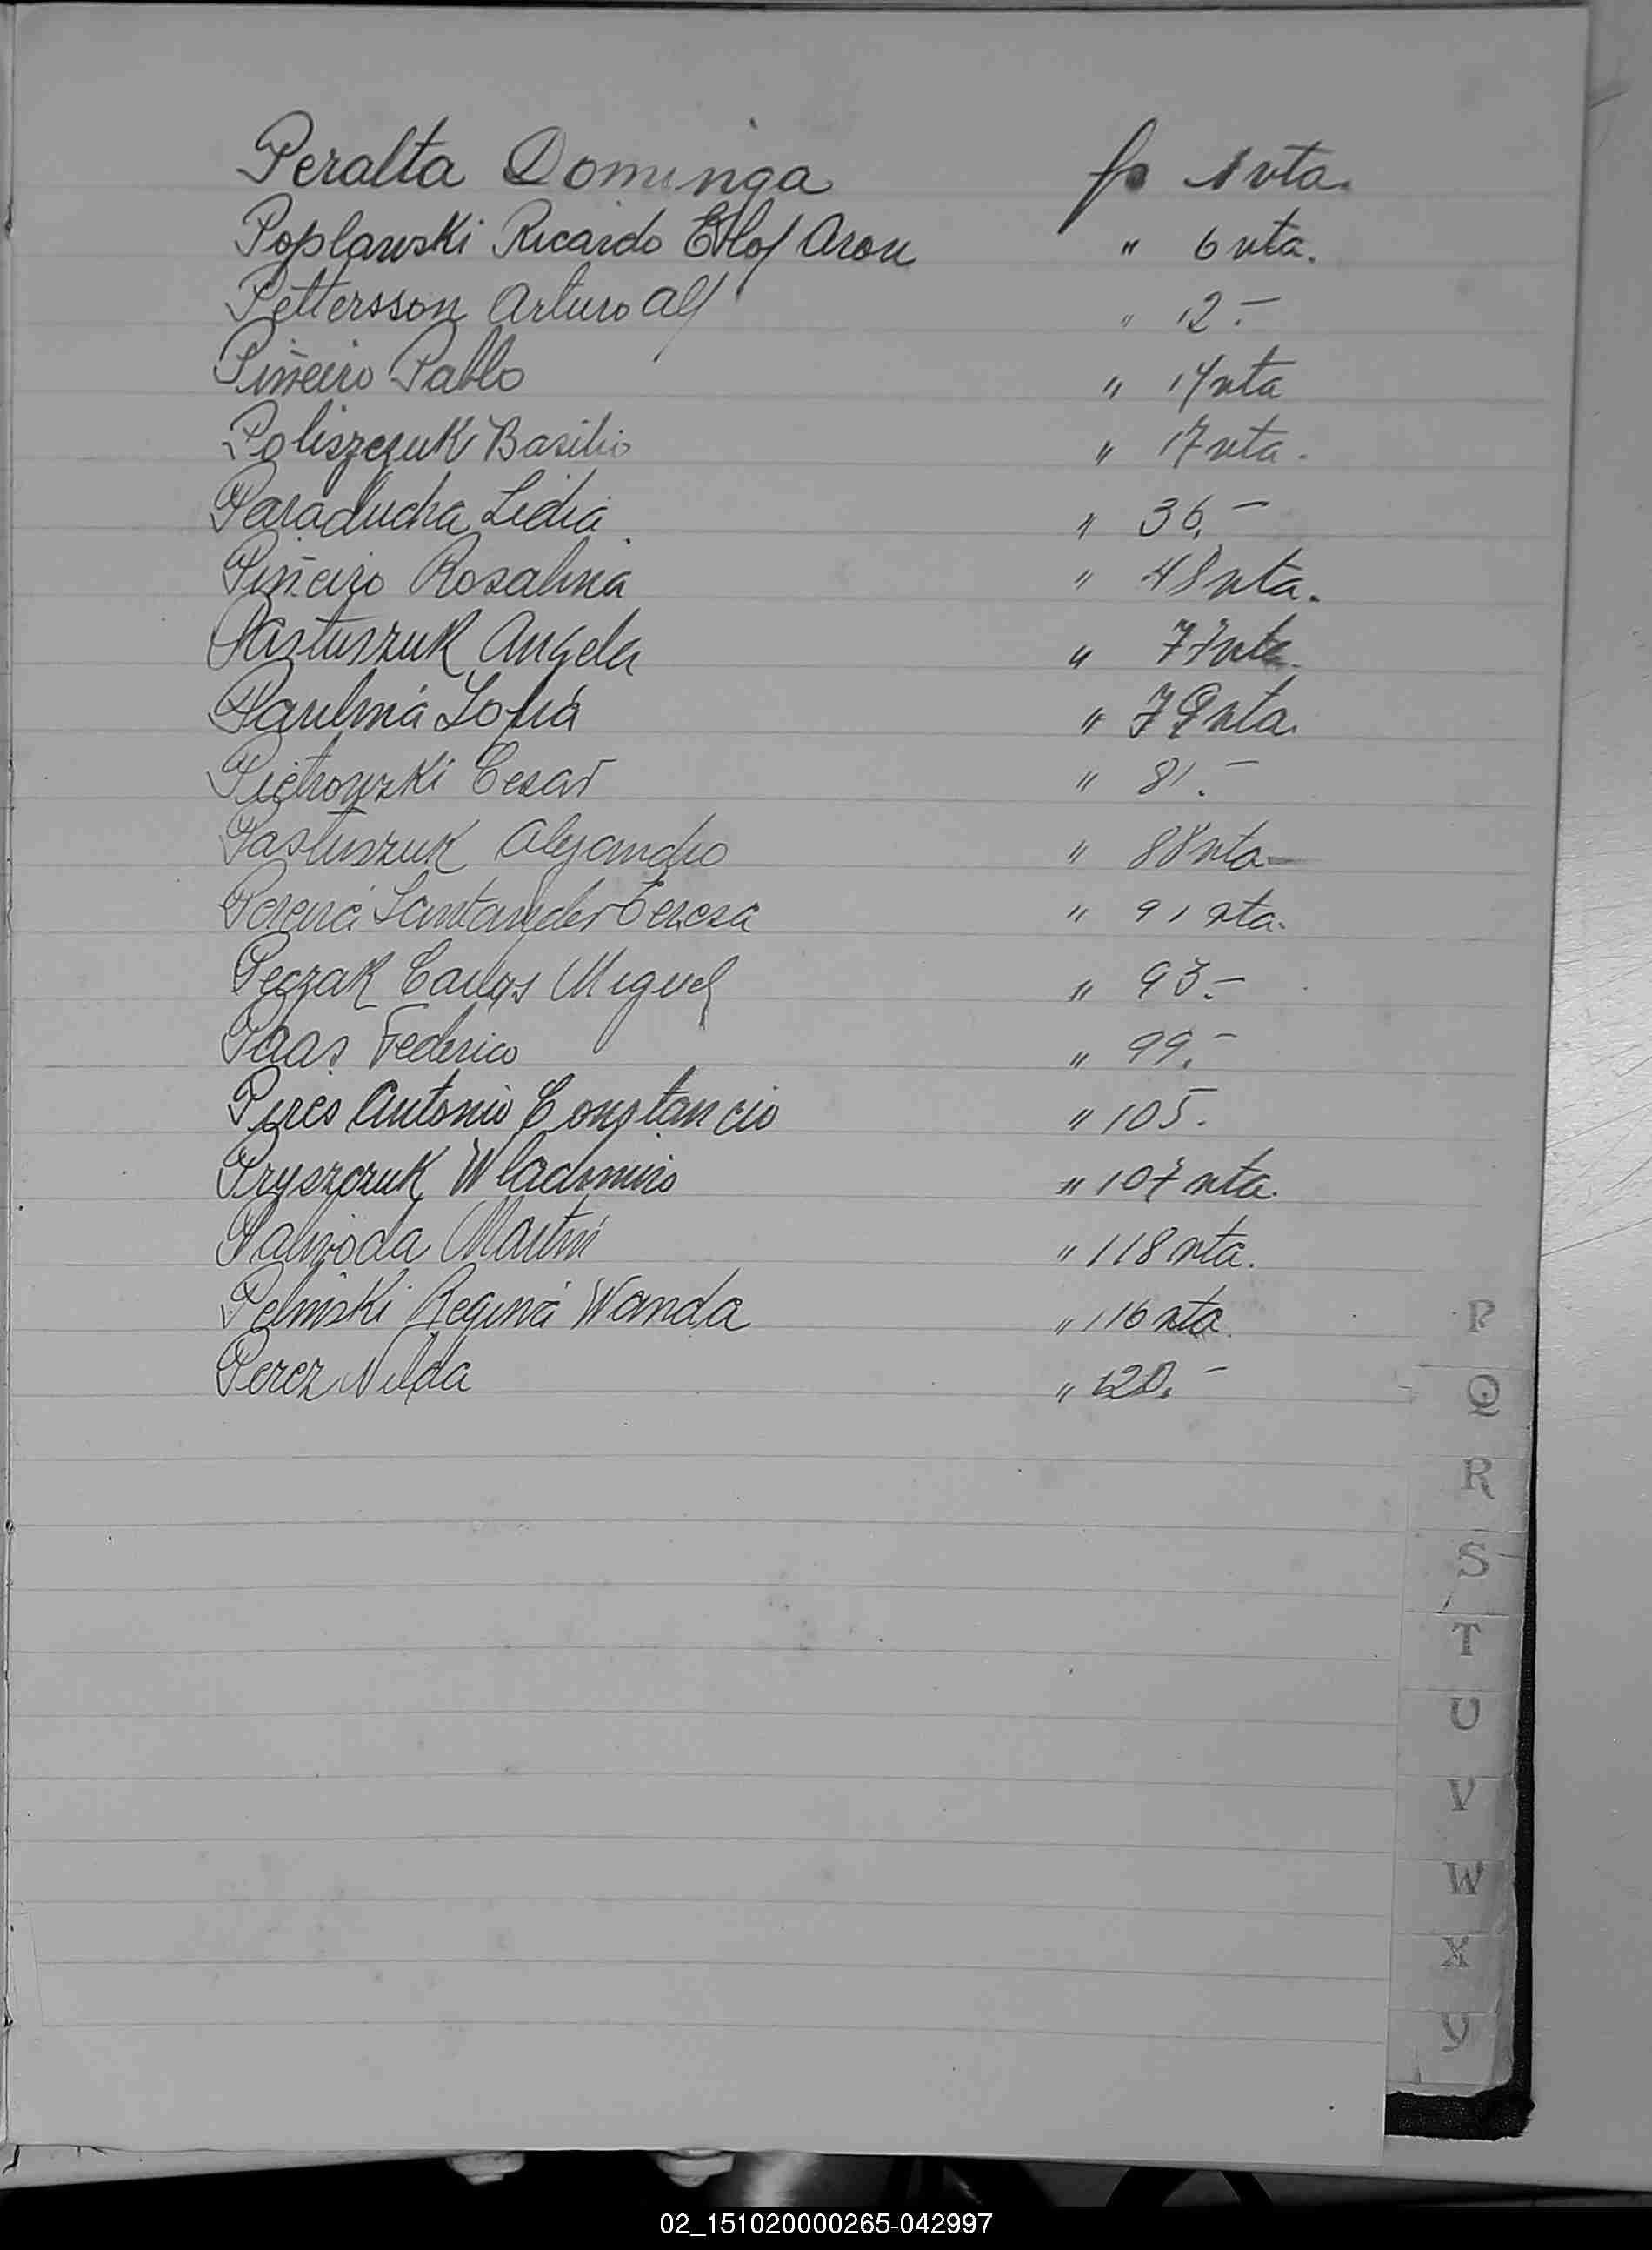 Peralta Dominga fs 1 vta.
Poplawski Ricardo Olof Aron " 6 vta.
Pettersson Arturo Alf " 12.-
Piñeiro Pablo " 14 vta
Poliszczuk Basilio " 17 vta.
Paraducha Lidia " 36.-
Piñeiro Rosalina " 48 vta.
Pastuszuk Angela " 77 vta.
Paulina Sofia " 79 vta.
Pietrowski Cesar " 81.-
Pastuszuk Alejandro " 88 vta
Santander Teresa " 91 vta.
Peczak Carlos Miguel " 93.-
Paas Federico " 99.-
Pires Antonio Constancio " 105.
Pryszczuk Wladimiro " 107 vta.
Palwoda Martin " 118 vta.
Pelinski Regina Wanda " 116 vta.
Perez Nilda " 120.-
P
Q
R
S
T
U
V
W
X
Y
02_151020000265-042997